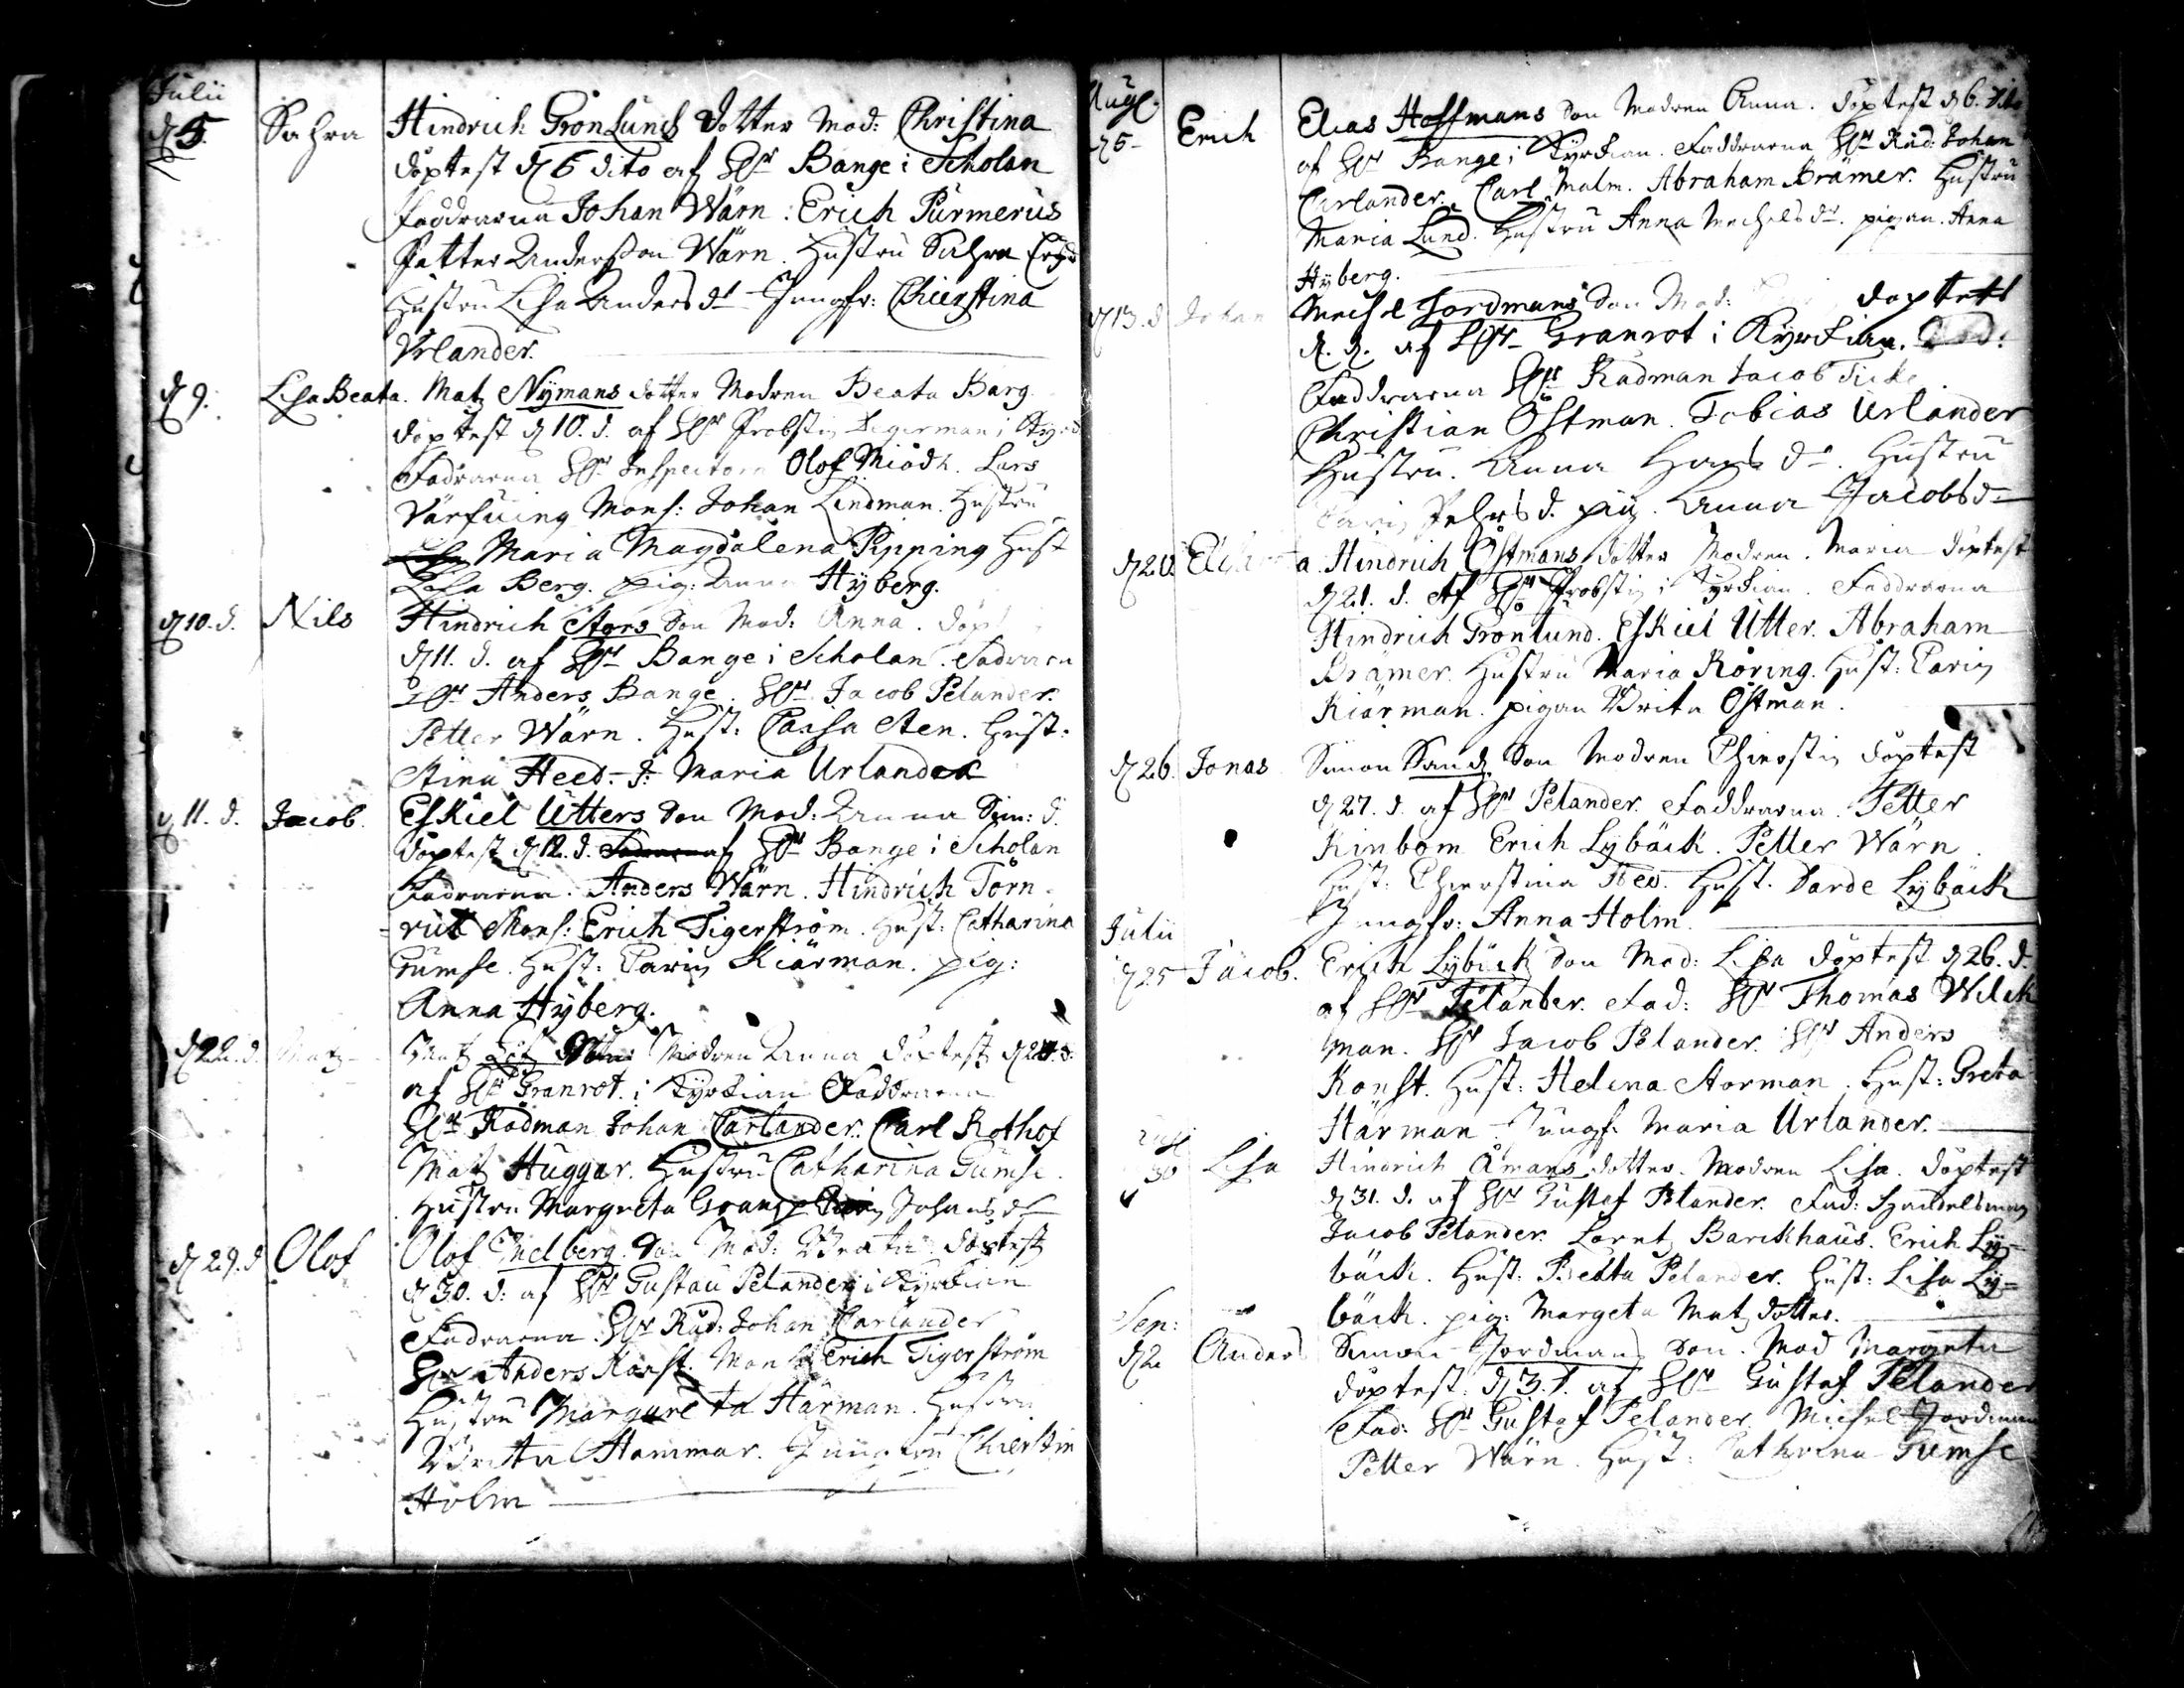 Julii
d 5. Sahra Hindrich Grönlunds dotter Mod: Christina
döptest d 6 dito af Hr Bange i Scholan
Faddrarna Johan Wärn. Erich Purmerus
Petter Andersson Wärn. Hustru Sahra
Hustru Lisa Anders dr Jungfr: Chierstina
Urlander.
d 9. Lisa Beata. Matz Nÿmans dotter Modren Beata Barg.
döptest d 10. d. af Hr Probsten Tegerman i
Fadrarna Hr Inspectorn Olof Miödh. Lars
Mons: Johan Lindman. Hustru
Maria Magdalena Pipping Hust
Lisa Berg. pig: Anna Hÿberg.
d 10. d. Nils Hindrich Stors Son Mod: Anna. döpt
d 11. d. af Hr Bange i Scholan. Fadraren
Hr Anders Bange. Hr Jacob Pelander.
Petter Wärn. Hust: Caisa Sten. Hust:
Stina Heed. J: Maria Urlander
d 11. d. Jacob. Eskiel Utters Son Mod: Anna Sim: d.
döptest d 12. d. af Hr Bange i Scholan
Fadrarna. Anders Wärn. Hindrich Törn
rut Mons: Erich Tigerström. Hust: Catharina
Gumse. Hust: Carin Kiärman. pig:
Anna Hÿberg.
d 22. d. Matz Matz Modren Anna döptest d
af Hr Granrot i Kÿrkian Faddrarna
Hr Rådman Johan Carlander. Carl Rothof
Matz Huggar. Hustru Catharina Gumse.
Hustru Margreta Johans dr
d 29. d Olof Olof Melberg. Son Mod: Breata döptest
d 30. d: af Hr Gustau Pelander i Kÿrkian
Fadrarna Hr Råd: Johan Carlander
Hr Anders Konst. Mons Erich Tigerström
Hustru Margareta Härman. Hustru
Brita Hammar. Jungfru Chierstin
Holm
Aug.
d 5 Erich Elias Hoffmans Son Modren Anna. döptest d 6. dito
af Hr Bange i Kÿrkian. Faddrarna Hr Råd: Johan
Carlander. Carl Malm. Abraham Brämer. Hustru
Maria Lund. Hustru Anna Michels dr. pigan. Anna
Hÿberg.
d 13. d Johan Michel Jordmans Son Mod: döptest
d. d. af Hr Granrot i Kÿrkian.
Faddrarna Hr Rådman Jacob
Christian Östman. Tobias Urlander
Hustru. Anna Hans dr. Hustru
Carin Pehrs d. pig. Anna Jacobs dr
d 20. Hindrich Östmans dotter Modren. Maria döptest
d 21. d. Af Hr Probsten i Kÿrkian. Faddrarna
Hindrich Grönlund. Eskiel Utter. Abraham
Brämer. Hustru Maria Röring. Hust: Carin
Kiärman. pigan Brita Östman.
d 26. Jonas Simon Sands Son Modren Chierstin döptest
d 27. d. af Hr Pelander. Faddrarna. Petter
Kinbom Erich Lÿbäck. Petter Wärn
Hust: Chierstina Heed. Hust. Barbe Lÿbäck
Jungfr: Anna Holm.
Julii
d 25 Jacob. Erich Lÿbäck Son Mod: Lisa döptest d 26. d.
af Hr Pelander. Fad: Hr Thomas Wilck
man. Hr Jacob Pelander. Hr Anders
Konst. Hust: Helena Storman. Hust: Greta
Härman. Jungf: Maria Urlander.
30 Lisa Hindrich Åmans dotter. Modren Lisa. döptest
d 31. d. af Hr Gustaf Pelander. Fad: Handelsman
Jacob Pelander. Lorentz Barckhaus. Erich Lÿ=
bäck. Hust: Beata Pelander. Hust: Lisa Lÿ=
bäck. pig: Margeta Matz dotter.
Sep:
d 2 Anders Simon Jordmans Son. Mod Margeta
döptest d 3. d. af Hr Gustaf Pelander
Fad: Hr Gustaf Pelander. Michel Jordman
Petter Wärn. Hust: Cathrina Gumse